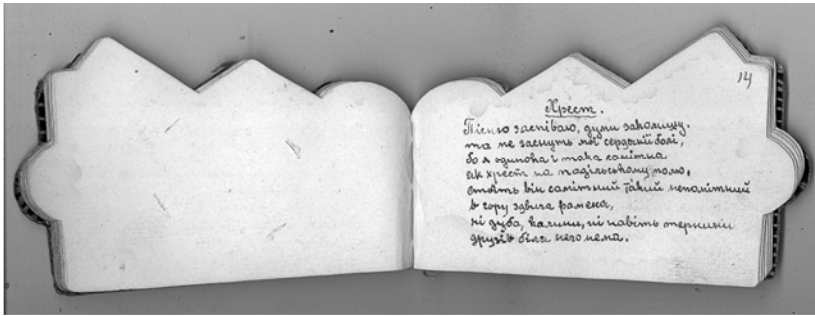 14
Хрест.
Пісню заспіваю, думи заколишу.
та не заснуть мої сердешні болі,
бо я одинока і така самітна
як хрест на подільському полю,
стоїть він самітний такий непомітний
в гору здвига рамена,
ні дуба, калини, ні навіть тернини
друзів біля него нема.